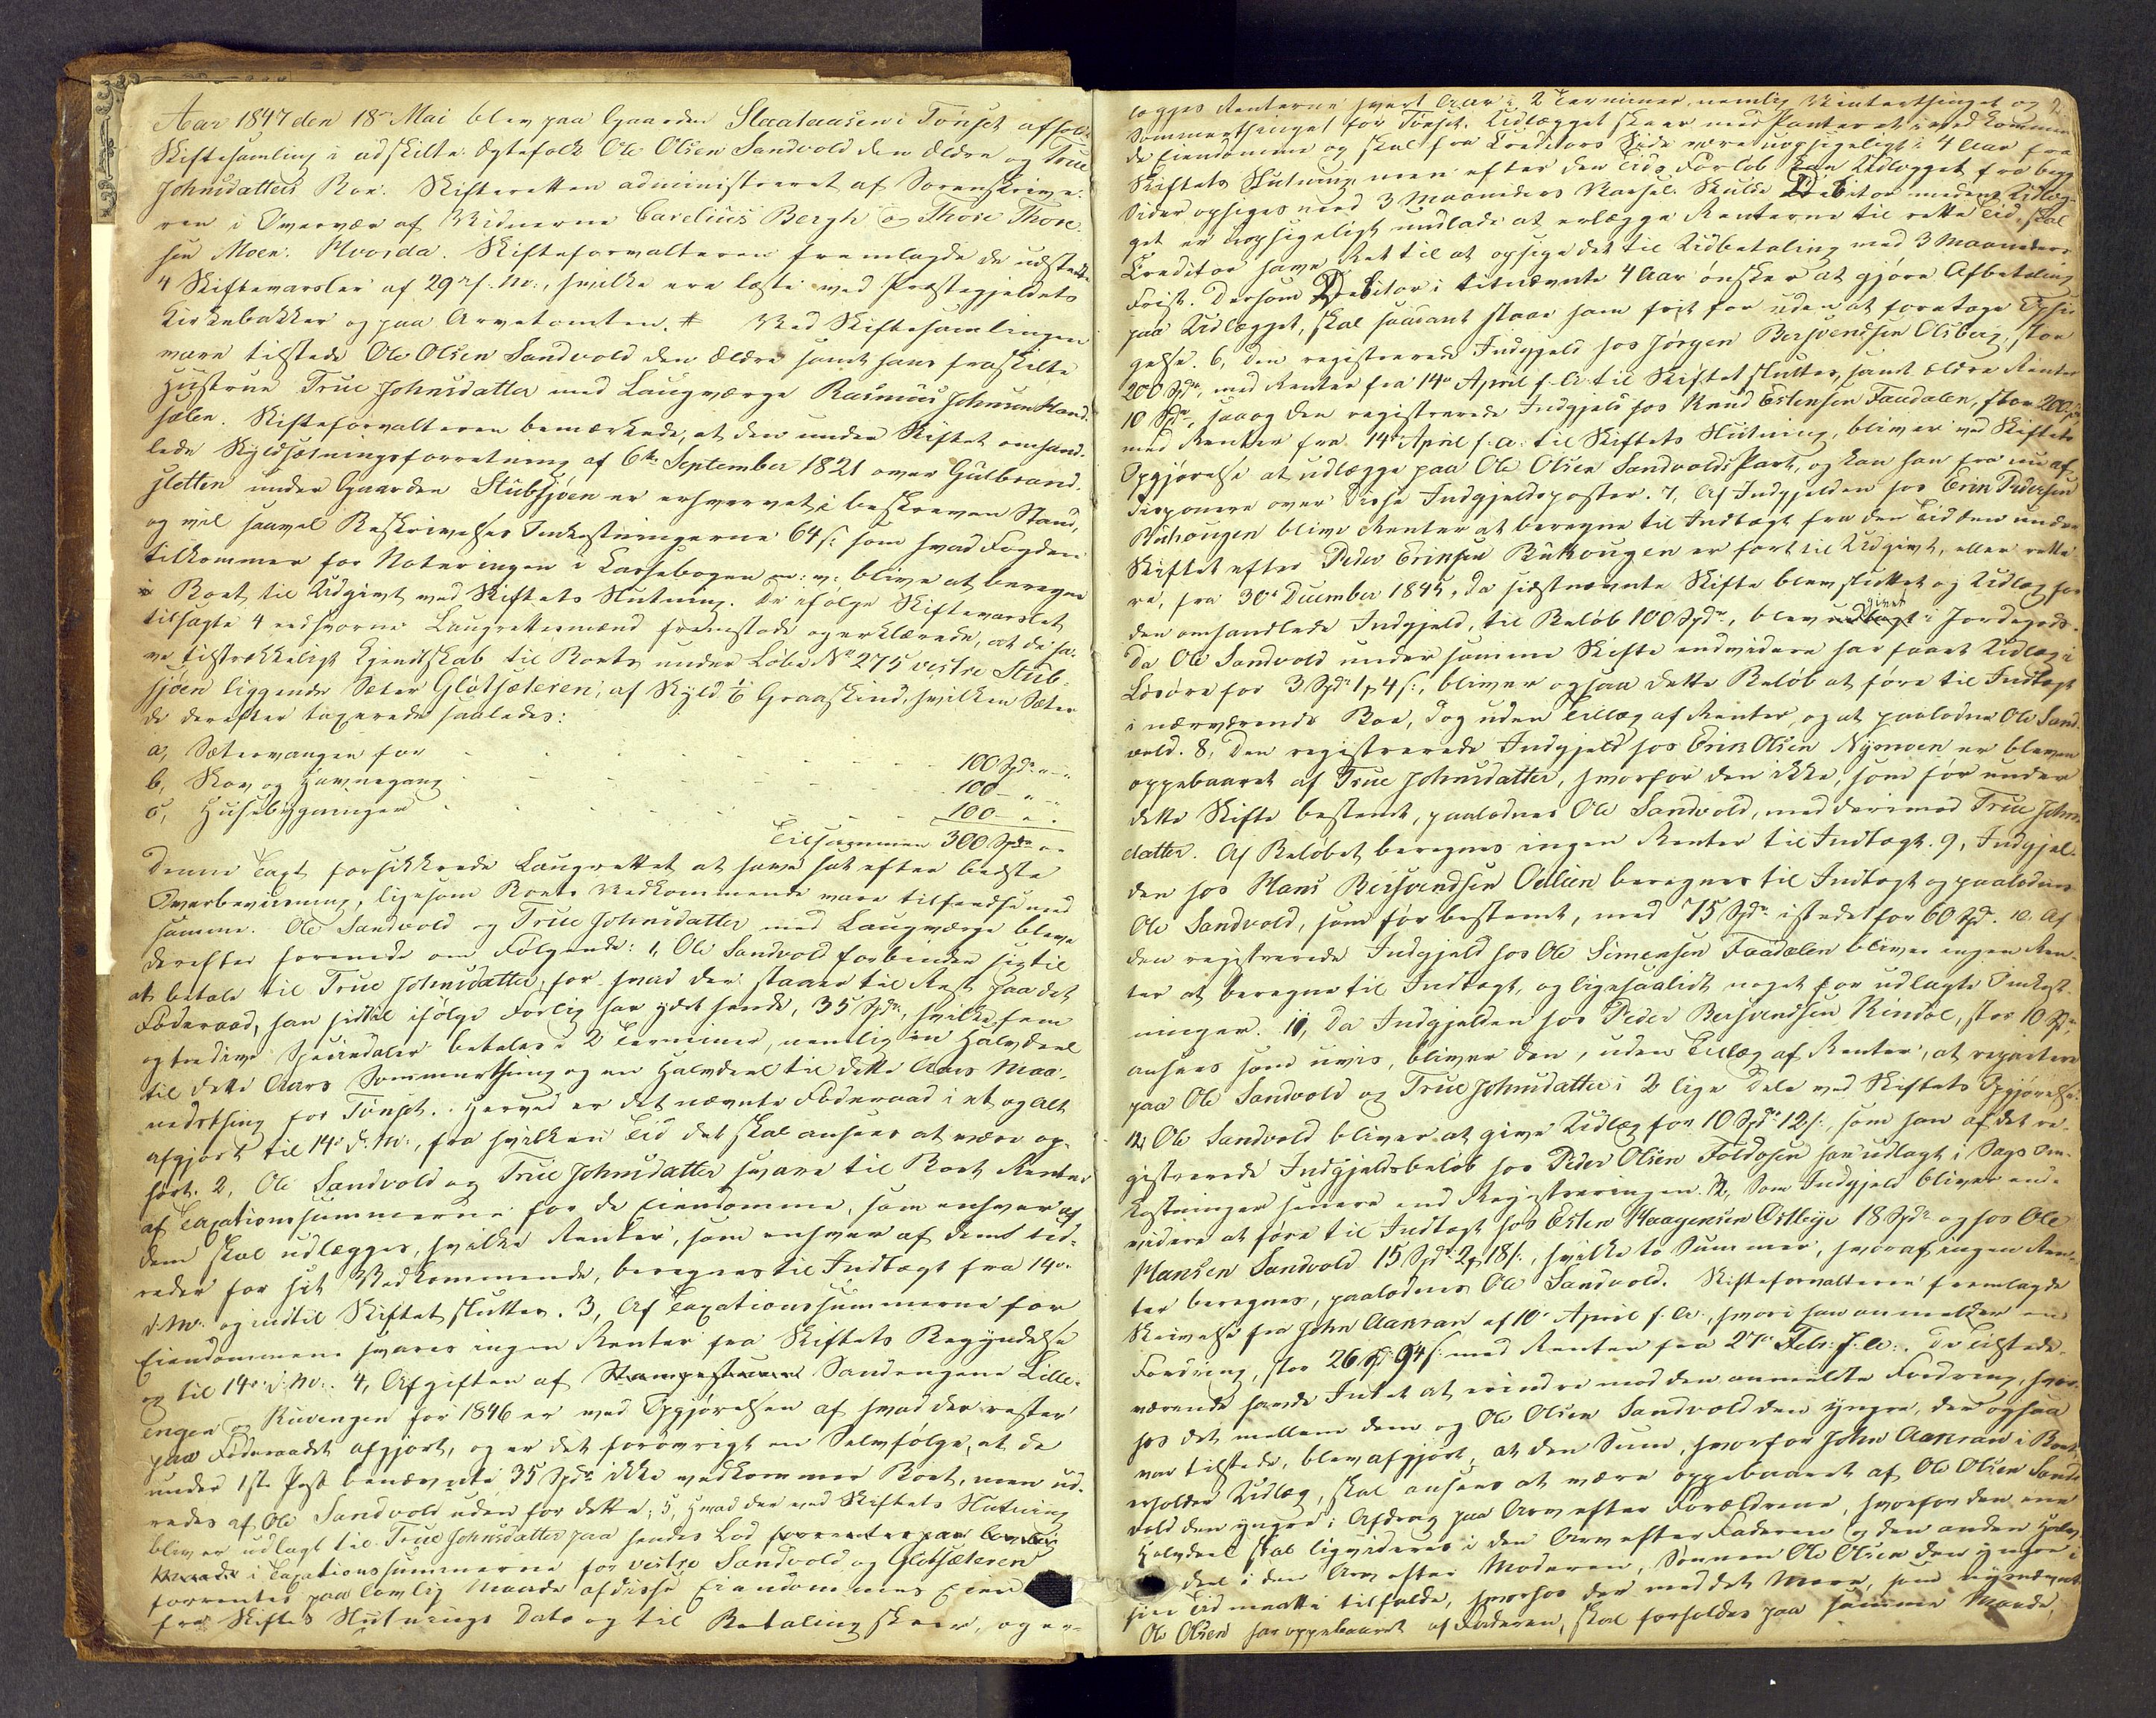 Aar 1847 den 18de Mai blev paa Gaarden Staataasen i Tønset afholdt
Skiftesamling i adskilte Ægtefolk Ole Olsen Sandvold den Ældre og True
Johnsdatters Boe. Skifteretten administreret af Sorenskrive-
ren i Overvær af Vidnerne Carelius Bergh og Thore Thore-
sen Moen. Hvorda. Skifteforvalteren fremlagde de udstedte
4 Skiftevarsler af 29de f. M., hvilke ere læste ved Præstegjeldets
Kirkebakker og paa Arvetomten. # Ved Skiftesamlingen
vare tilstede Ole Olsen Sandvold den Ældre samt hans fraskilte
Hustrue True Johnsdatter med Laugværge Rasmus Johnsen Hand-
sælen. Skifteforvalteren bemærkede, at den under Skiftet omhand-
lede Skyldsætningsforretning af 6te September 1821 over Gulbrand-
sletten under Gaarden Stubsjøen er erhvervet i beskreven Stand,
og vil saavel Beskrivelses Omkostningerne 64 s. som hvad Fogden
tilkommer for Noteringen i Cassebogen m: v: blive at beregne
Boet til Udgivt ved Skiftets Slutning. De ifølge Skiftevarslet
tilsagte 4 eedsvorne Laugrettesmænd fremstode og erklærede, at de ha-
ve tilstrækkeligt Kjendskab til Boets under Løbe No 275 vestre Stub-
sjøen liggende Sæter Gløtsæteren, af Skyld 1/6 Graaskind, hvilken Sæter
de derefter taxerede saaledes:
a, Sætervangen for - - - 100 Spd. " "
b, Skov og Havnegang - - - 100 - " "
c, Husebygninger - - - 100 - " "
Tilsammen 300 Spd. " "
Denne Taxt forsikkrede Laugrettet at have sat efter bedste
Overbeviisning, ligesom Boets Vedkommende vare tilfredse med
samme. Ole Sandvold og True Johnsdatter med Laugværge bleve
derefter forenede om Følgende: 1, Ole Sandvold forbinder sig til
at betale til True Johnsdatter, for hvad der staaer til Rest paa det
Føderaad, han hidtil ifølge Forlig har ydet hende, 35 Spd., hvilke fem
og tredive Speciedaler betales i 2 Terminer, nemlig en Halvdeel
til dette Aars Sommerthing og en Halvdeel til dette Aars Maa-
nedsthing for Tønset. Herved er det nævnte Føderaad i et og Alt
afgjort til 14de d. M., fra hvilken Tid det skal ansees at være op-
hørt. 2, Ole Sandvold og True Johnsdatter svare til Boet Renter
af Taxationssummerne for de Eiendomme, som enhver af
dem skal udlægges, hvilke Renter, som enhver af dem ud-
reder for sit Vedkommende, beregnes til Indtægt fra 14de
d. M. og indtil Skiftet sluttes. 3, Af Taxationssummerne for
Eiendommene svares ingen Renter fra Skiftets Begyndelse
og til 14de d. M. 4, Afgiften af Sandengene Lille-
engen og Ruvengen for 1846 er ved Opgjørelsen af hvad der rester
paa Føderaadet afgjort, og er det forøvrigt en Selvfølge, at de
under 1ste Post benævnte 35 Spd. ikke vedkommer Boet, men ud-
redes af Ole Sandvold uden for dette. 5, Hvad der ved Skiftets Slutning
bliver udlagt til True Johnsdatter paa hendes Lod forrentes paa lovlig
Maade i Taxationssummerne for vestre Sandvold og Gløtsæteren
forrentes paa lovlig Maade af disse Eiendommes Eier
fra Skiftets Slutnings Dato og til Betaling skeer, og er-
2.
lægges Renterne hvert Aar i 2 Terminer, nemlig Vinterthinget og
Sommerthinget for Tønset. Udlægget skeer med Panteret i vedkommen-
de Eiendomme og skal fra Creditors Side være uopsigeligt i 4 Aar fra
Skiftets Slutning, men efter den Tids Forløb kan Udlægget fra begge
Sider opsiges med 3 Maaneders Varsel. Skulde Debitor medens Udlæg-
get er uopsigeligt undlade at erlægge Renterne til rette Tid, skal
Creditor have Ret til at opsige det til Udbetaling med 3 Maaneders
Frist. Dersom Debitor i bemeldte 4 Aar ønsker at gjøre Afbetaling
paa Udlægget, skal saadant staae ham frit for uden at foretage Opsi-
gelse. 6, Den registrerede Indgjeld hos Jørgen Bersvendsen Olsberg, stor
200 Spd., med Renter fra 14de April f. A. til Skiftet sluttes, samt ældre Renter
10 Spd., saa og den registrerede Indgjeld hos Knud Estensen Faadalen, stor 200 Spd.
med Renter fra 14de April f. A. til Skiftets Slutning, bliver ved Skiftets
Opgjørelse at udlægge paa Ole Olsen Sandvolds Part, og kan han fra nu af
disponere over disse Indgjeldsposter. 7, Af Indgjelden hos Erik Pedersen
Ruhougen blive Renter at beregne til Indtægt fra den Tid den under
Skiftet efter Peder Eriksen Ruhougen er ført til Udgivt, eller rette-
re, fra 30te December 1845, da sidstnævnte Skifte blev sluttet og Udlæg for
den omhandlede Indgjeld, til Beløb 100 Spd., blev givet i Jordegods.
Da Ole Sandvold under samme Skifte endvidere har faaet Udlæg i
Løsøre for 3 Spd. 1 ort 4 s., bliver ogsaa dette Beløb at føre til Indtægt
i nærværende Boe, dog uden Tillæg af Renter, og at paalodne Ole Sand-
vold. 8, Den registrerede Indgjeld hos Erik Olsen Nymoen er bleven
oppebaaret af True Johnsdatter, hvorfor den ikke, som før under
dette Skifte bestemt, paalodnes Ole Sandvold, med derimod True Johns-
datter. Af Beløbet beregnes ingen Renter til Indtægt. 9, Indgjel-
den hos Hans Bersvendsen Oelien beregnes til Indtægt og paalodnes
Ole Sandvold, som før bestemt, med 75 Spd. istedetfor 60 Spd. 10, Af
den registrerede Indgjeld hos Ole Simensen Faadalen bliver ingen Ren-
ter at beregne til Indtægt, og ligesaalidt noget for udlagte Omkost-
ninger. 11, Da Indgjelden hos Peder Bersvendsen Rindal, stor 10 Spd.
ansees som uvis, bliver den, uden Tillæg af Renter, at repartere
paa Ole Sandvold og True Johnsdatter i 2 lige Dele ved Skiftets Opgjørelse.
12, Ole Sandvold bliver at give Udlæg for 10 Spd. 12 s., som han af det re-
gistrerede Indgjeldsbeløb hos Peder Olsen Foldosen har udlagt i Sags Om-
kostninger senere end Registreringen. 12, Som Indgjeld bliver end-
videre at føre til Indtægt hos Esten Haagensen Østbye 18 Spd. og hos Ole
Hansen Sandvold 15 Spd. 2 ort 18 s., hvilke to Summer, hvoraf ingen Ren-
ter beregnes, paalodnes Ole Sandvold. Skifteforvalteren fremlagde
Skrivelse fra John Aanran af 10de April f. A., hvori han anmelder en
Fordring, stor 26 Spd. 94 s. med Renter fra 27de Febr. f. A. De Tilstede-
værende havde Intet at erindre mod den anmeldte Fordring, hvor-
hos det mellem dem og Ole Olsen Sandvold den yngre, der ogsaa
var tilstede, blev afgjort, at den Sum, hvorfor John Aanran i Boet
erholder Udlæg, skal ansees at være oppebaaret af Ole Olsen Sand-
vold den yngre i Afdrag paa Arv efter Forældrene, hvorfor den ene
Halvdeel skal liqvideres i den Arv efter Faderen og den anden Halv-
deel i den Arv efter Moderen, Sønnen Ole Olsen den yngre i
sin Tid maatte tilfalde, hvorhos det med det Mere, som nysnævnte
Ole Olsen har oppebaaret af Faderen, skal forholdes paa samme Maade,